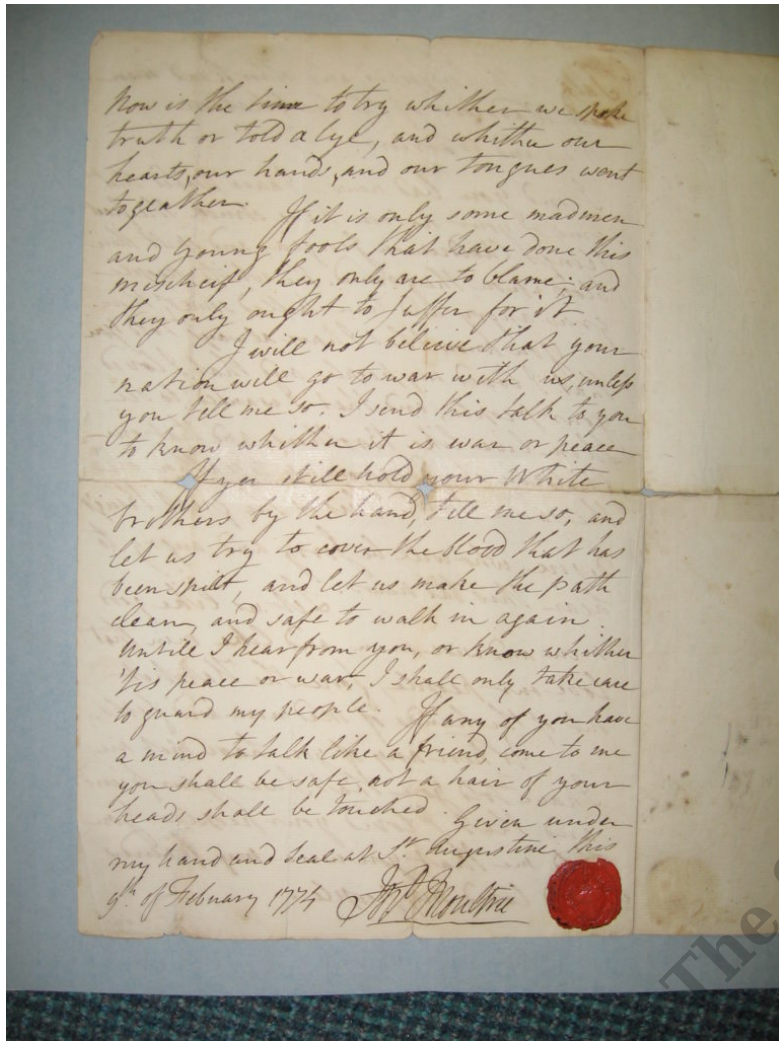 Now is the time to try whither we spoke
truth or told a lye, and whither our
hearts, our hands, and our tongues went
togeather. If it is only some madmen
and young fools that have done this
mischeif, they only are to blame; and
they only ought to suffer for it
I will not believe that your
nation will go to war with us, unless
you tell me so. I send this talk to you
to know whither it is war or peace
If you still hold your White
brothers by the hand, tell me so, and
let us try to cover the blood that has
been spilt, and let us make the path
clean, and safe to walk in again.
Untill I hear from you, or know whither
'tis peace or war, I shall only take care
to guard my people. If any of you have
a mind to talk like a friend, come to me
you shall be safe, not a hair of your
heads shall be touched. Given under
my hand and seal at St. Augustine this
9th of Febuary 1774 Jno Moultrie
The